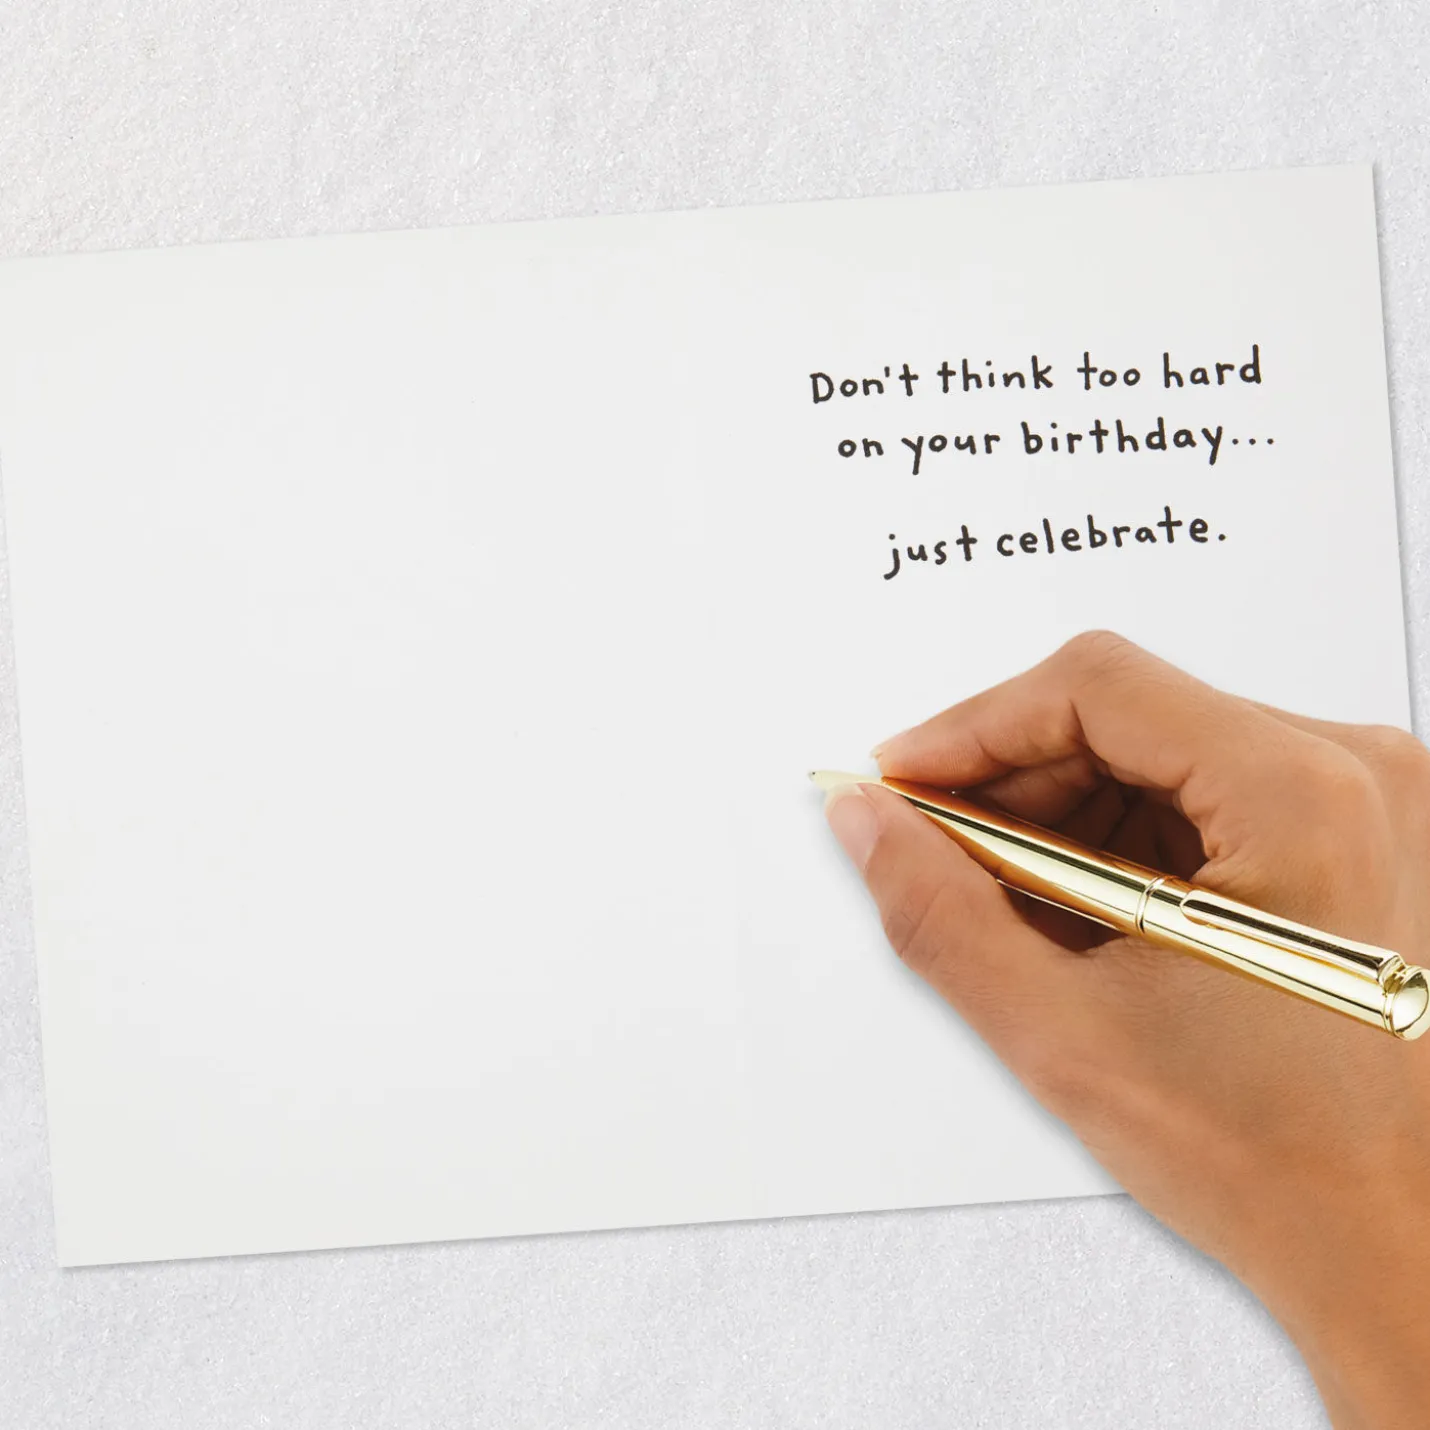 Don't think too hard
on your birthday...
just celebrate.